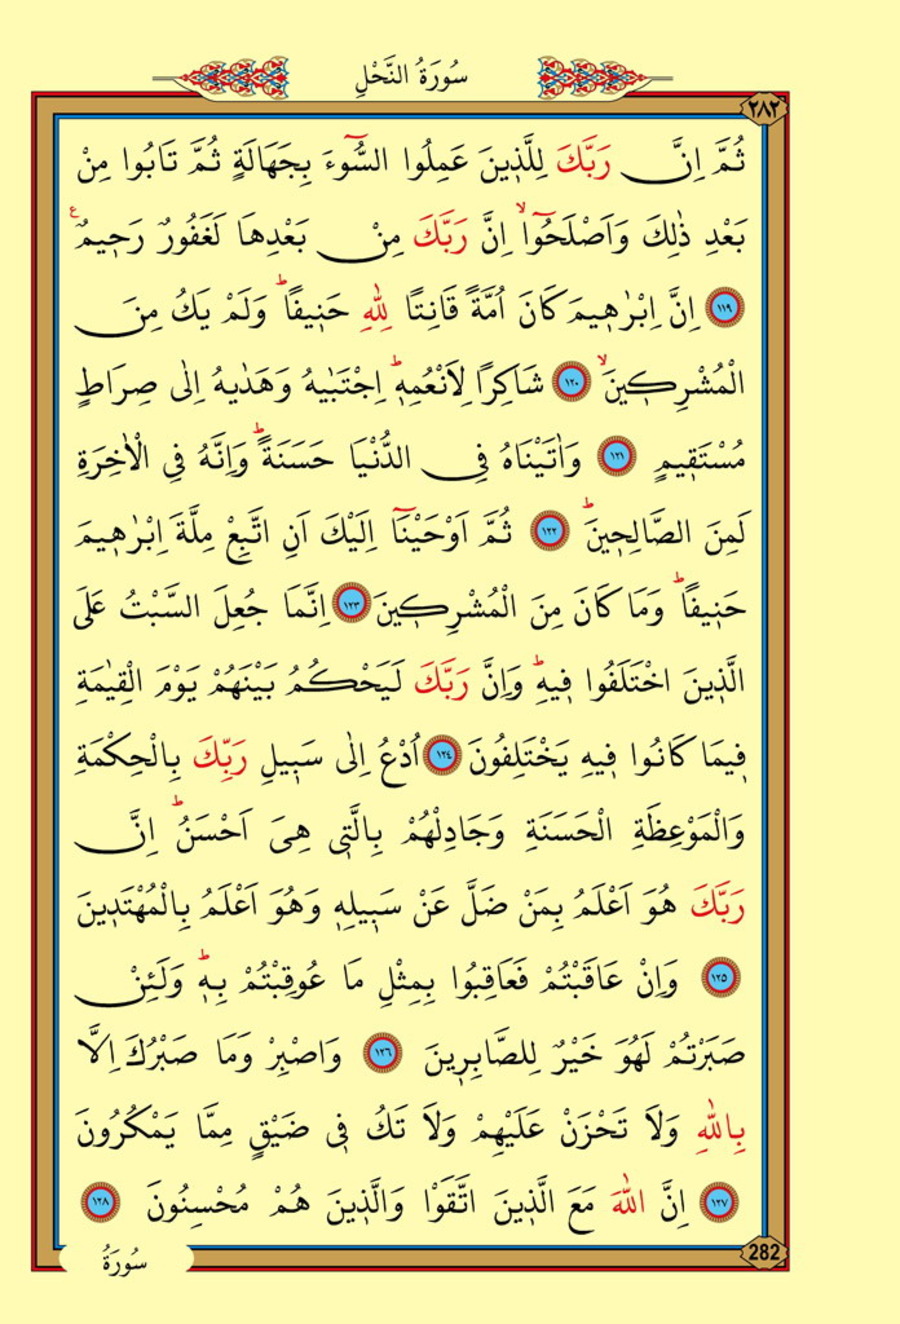 سُورَةُ النَّحْلِ
٢٨٢
ثُمَّ اِنَّ رَبَّكَ لِلَّذ۪ينَ عَمِلُوا السُّٓوءَ بِجَهَالَةٍ ثُمَّ تَابُوا مِنْ
بَعْدِ ذٰلِكَ وَاَصْلَحُٓواۙ اِنَّ رَبَّكَ مِنْ بَعْدِهَا لَغَفُورٌ رَح۪يمٌ ع
﴿١١٩﴾ اِنَّ اِبْرٰه۪يمَ كَانَ اُمَّةً قَانِتًا لِلّٰهِ حَن۪يفًاۜ وَلَمْ يَكُ مِنَ
الْمُشْرِك۪ينَۙ ﴿١٢٠﴾ شَاكِرًا لِاَنْعُمِه۪ۜ اِجْتَبٰيهُ وَهَدٰيهُ اِلٰى صِرَاطٍ
مُسْتَق۪يمٍ ﴿١٢١﴾ وَاٰتَيْنَاهُ فِي الدُّنْيَا حَسَنَةًۜ وَاِنَّهُ فِي الْاٰخِرَةِ
لَمِنَ الصَّالِح۪ينَۜ ﴿١٢٢﴾ ثُمَّ اَوْحَيْنَٓا اِلَيْكَ اَنِ اتَّبِعْ مِلَّةَ اِبْرٰه۪يمَ
حَن۪يفًاۜ وَمَا كَانَ مِنَ الْمُشْرِك۪ينَ ﴿١٢٣﴾ اِنَّمَا جُعِلَ السَّبْتُ عَلَى
الَّذ۪ينَ اخْتَلَفُوا ف۪يهِۜ وَاِنَّ رَبَّكَ لَيَحْكُمُ بَيْنَهُمْ يَوْمَ الْقِيٰمَةِ
ف۪يمَا كَانُوا ف۪يهِ يَخْتَلِفُونَ ﴿١٢٤﴾ اُدْعُ اِلٰى سَب۪يلِ رَبِّكَ بِالْحِكْمَةِ
وَالْمَوْعِظَةِ الْحَسَنَةِ وَجَادِلْهُمْ بِالَّت۪ي هِيَ اَحْسَنُۜ اِنَّ
رَبَّكَ هُوَ اَعْلَمُ بِمَنْ ضَلَّ عَنْ سَب۪يلِه۪ وَهُوَ اَعْلَمُ بِالْمُهْتَد۪ينَ
﴿١٢٥﴾ وَاِنْ عَاقَبْتُمْ فَعَاقِبُوا بِمِثْلِ مَا عُوقِبْتُمْ بِه۪ۜ وَلَئِنْ
صَبَرْتُمْ لَهُوَ خَيْرٌ لِلصَّابِر۪ينَ ﴿١٢٦﴾ وَاصْبِرْ وَمَا صَبْرُكَ اِلَّا
بِاللّٰهِ وَلَا تَحْزَنْ عَلَيْهِمْ وَلَا تَكُ ف۪ي ضَيْقٍ مِمَّا يَمْكُرُونَ
﴿١٢٧﴾ اِنَّ اللّٰهَ مَعَ الَّذ۪ينَ اتَّقَوْا وَالَّذ۪ينَ هُمْ مُحْسِنُونَ ﴿١٢٨﴾
282
سُورَةُ